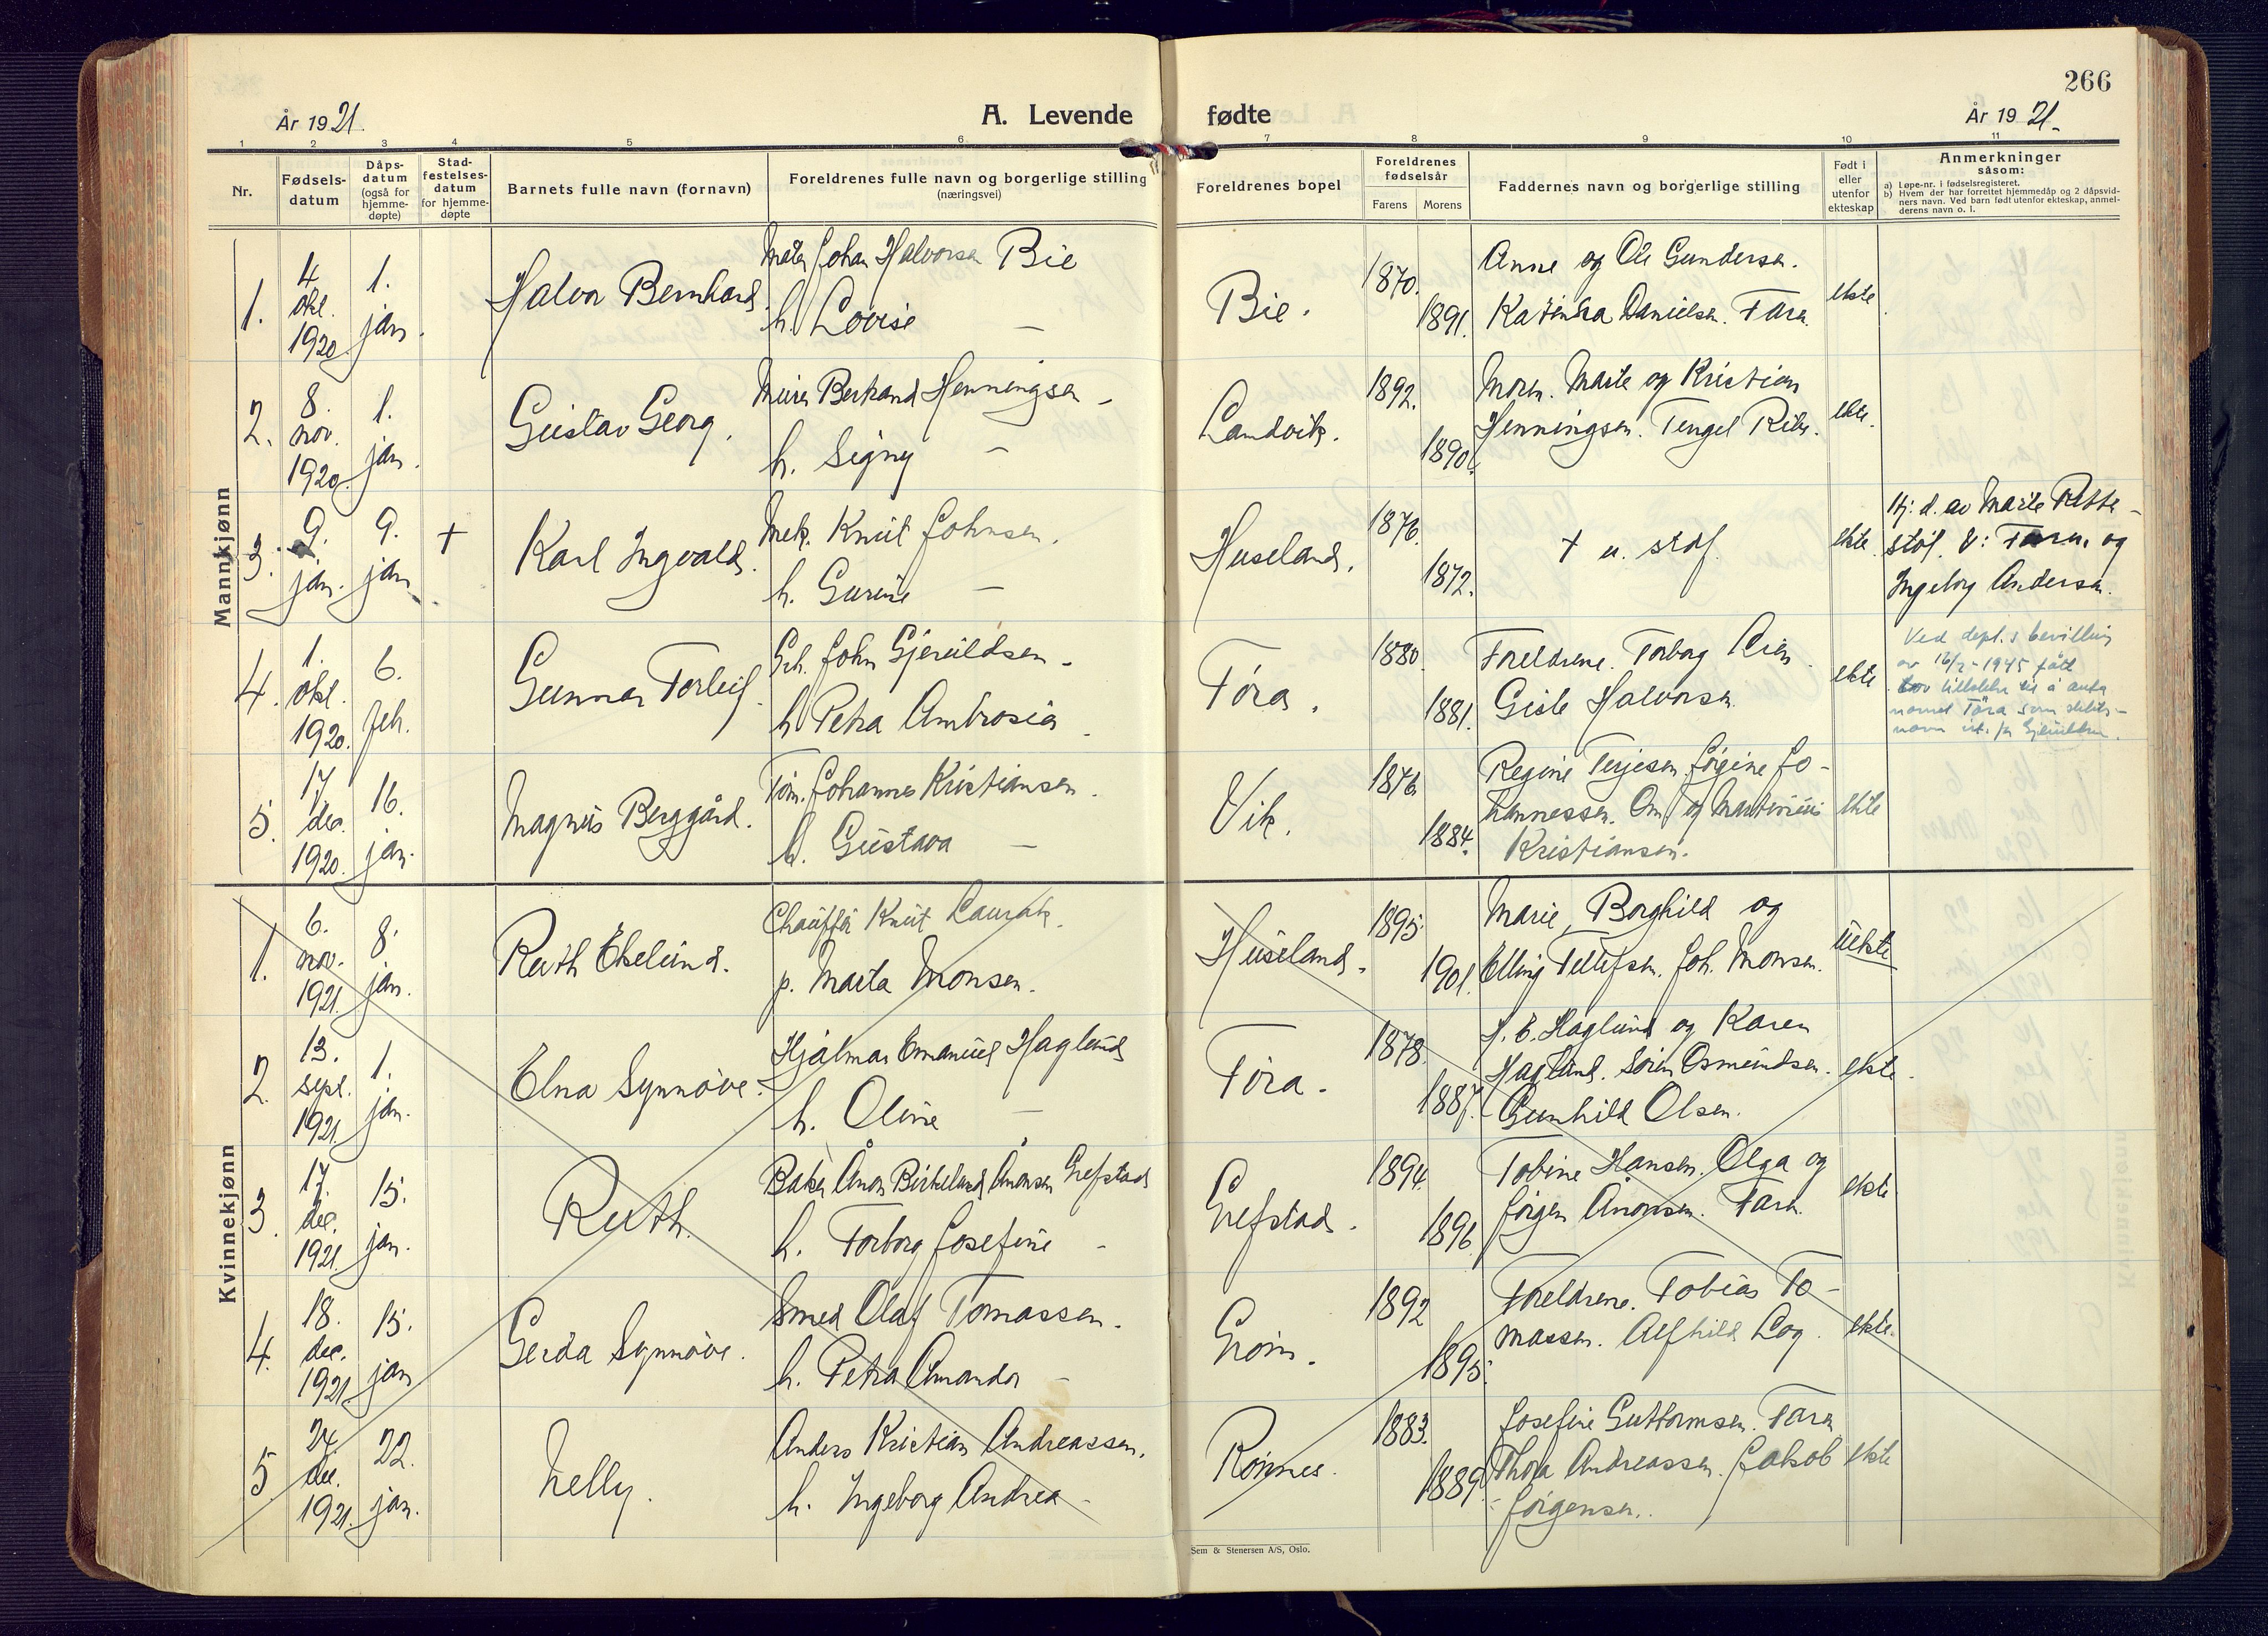 266
År 1921.
A. Levende fødte
År 1921.
1 2 3 4 5 6 7 8 9 10 11
Nr.
Fødsels-
datum
Dåps-
datum
(også for
hjemme-
døpte)
Stad-
festelses-
datum
for hjemme-
døpte
Barnets fulle navn (fornavn)
Foreldrenes fulle navn og borgerlige stilling
(næringsvei)
Foreldrenes bopel
Foreldrenes
fødselsår
Farens Morens
Faddernes navn og borgerlige stilling
Født i
eller
utenfor
ekteskap
Anmerkninger
såsom:
a) Løpe-nr. i fødselsregisteret.
b) Hvem der har forrettet hjemmedåp og 2 dåpsvid-
ners navn. Ved barn født utenfor ekteskap, anmel-
derens navn o. l.
Mannkjønn
1.
4
okt.
1920
1.
jan.
Halvor Bernhard
Johan Halvorsen Bie
h. Lovise —
Bie.
1870.
1891.
Anne og Ole Gundersen.
Danielsen. Faren
ekte
2.
8.
nov.
1920.
1.
jan.
Gustav Georg.
Murer Bertrand Henningsen -
h. Signy -
Landvik.
1892.
1890.
Moren. Marte og Kristian
Henningsen. Tengel
ekte.
3.
9.
jan.
9.
jan.
+
Karl Ingvald.
Mek. Knut Johnsen.
h. Gurine —
Huseland.
1876.
1872.
+ u. stdf.
ekte
Hj. d. av Marie
Faren og
Ingeborg Andersen.
4.
1.
okt.
1920.
6.
feb.
Gunnar Torleif.
John Gjeruldsen -
h. Petra Ambrosia
Tóra.
1880.
1881.
Foreldrene. Torborg
Halvorsen
ekte
Ved dept.s bevilling
av 16/2-1945 fått
tillatelse til å anta
navnet Tóra som slekts-
navn ist. for Gjeruldsen.
5.
17
dec.
1920.
16.
jan.
Magnus Berggård.
Tøm. Johannes Kristiansen.
h. Gustava —
Vik.
1876
1884.
Regine Terjesen Jørgine Jo-
hannessen. Om og Martinius
Kristiansen.
ekte
Kvinnekjønn
1.
6.
nov.
1921.
8.
jan.
Ruth Ekelund.
Chauffør Knut
p. Marta Monsen.
Huseland.
1895.
1901.
Marie, Borghild og
Elling Tellefsen. Joh. Monsen.
uekte
2.
13.
sept.
1921.
1.
jan.
Elna Synnøve.
Hjalmar Emanuel Haglund
h. Oline —
Tóra.
1878.
1887.
H. E. Haglund og Karen
Haglund. Søren Osmundsen.
Gunhild Olsen.
ekte.
3.
17.
dec.
1921.
15.
jan.
Ruth.
Baker Ånon Birkeland Ånonsen Grefstad
h. Torborg Josefine -
Grefstad.
1894.
1896.
Tobine Hansen. Olga og
Jørgen Ånonsen. Faren.
ekte
4.
18.
dec.
1921.
15.
jan
Gerda Synnøve.
Smed Olaf Tomassen.
h. Petra Amanda -
Grøm.
1892
1895.
Foreldrene. Tobias To-
massen. Alfhild Log.
ekte.
5
24
dec.
1921.
22.
jan.
Nelly.
Anders Kristian Andreassen.
h. Ingeborg Andrea -
Rønnes.
1883.
1889.
Josefine Guttormsen. Faren
Thora Andreassen. Jakob
Jørgensen.
ekte
Sem & Stenersen A/S, Oslo.